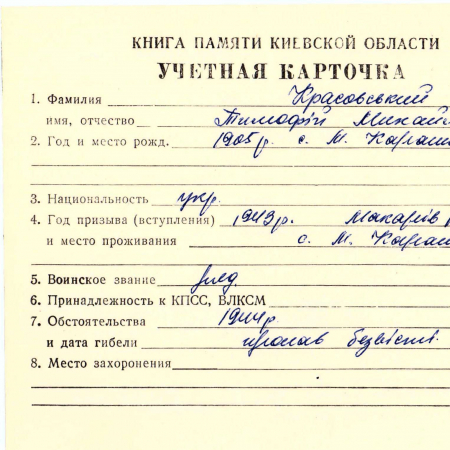 КНИГА ПАМЯТИ КИЕВСКОЙ ОБЛАСТИ
УЧЕТНАЯ КАРТОЧКА
1. Фамилия Красовський
имя, отчество Тимофій Михай
2. Год и место рожд. 1905р. с. М. Карам
3. Национальность укр.
4. Год призыва (вступления) 1943р. Макарів
и место проживания с. М. Карам
5. Воинское звание
6. Принадлежность к КПСС, ВЛКСМ
7. Обстоятельства 1944р
и дата гибели пропав безвісті.
8. Место захоронения